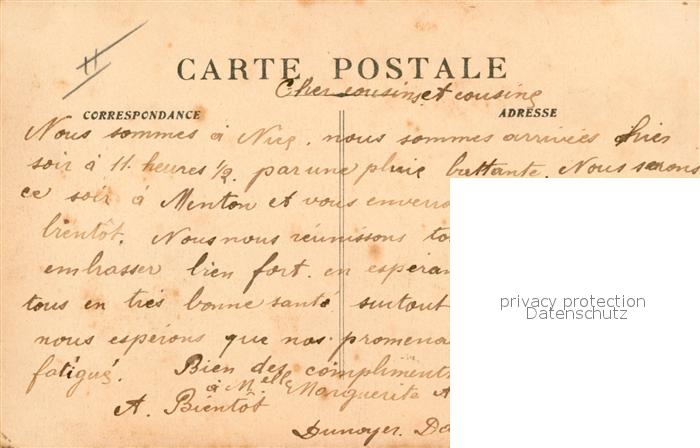 CARTE POSTALE
Cher cousins et cousine
CORRESPONDANCE
ADRESSE
Nous sommes à Nice, nous sommes arrivées hier
soir à 11 heures 1/2 par une pluie battante. Nous serons
ce soir à Menton et vous enverro
bientôt. Nous nous réunissons to
embrasser bien fort en espéran
tous en très bonne santé surtout
nous espérons que nos promena
fatigué. Bien des compliments
à Melle Marguerite A
A Bientôt
Dunoyer. Da
privacy protection
Datenschutz